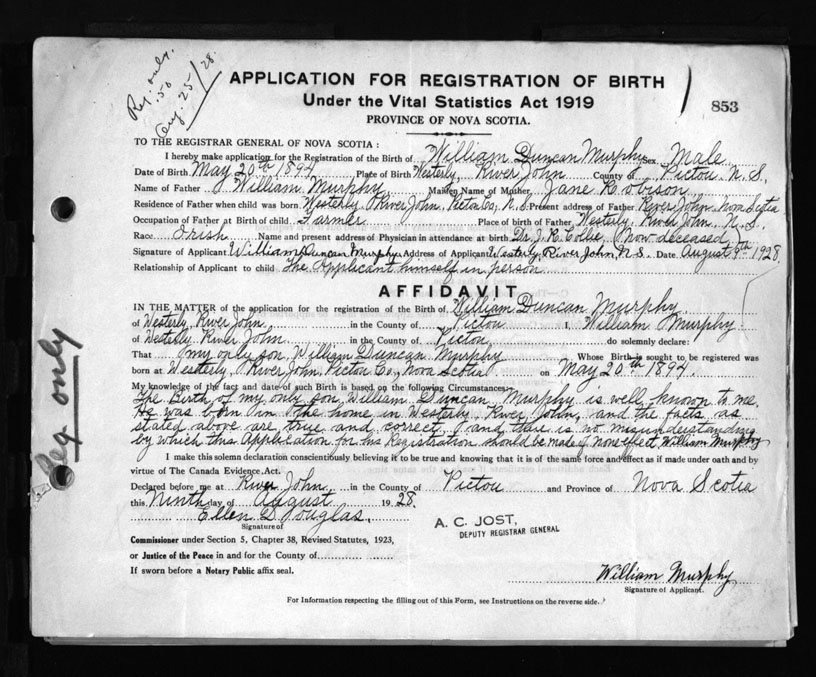 Reg. only.
.50
Aug. 25/28.
APPLICATION FOR REGISTRATION OF BIRTH
Under the Vital Statistics Act 1919
PROVINCE OF NOVA SCOTIA.
853
TO THE REGISTRAR GENERAL OF NOVA SCOTIA :
I hereby make application for the Registration of the Birth of William Duncan Murphy Sex Male
Date of Birth May 20th 1894 Place of Birth Westerly, River John County of Pictou N. S.
Name of Father William Murphy Maiden Name of Mother, Jane Robison
Residence of Father when child was born Westerly River John, Pictou Co, N. S. Present address of Father River John Nova Scotia
Occupation of Father at Birth of child Farmer Place of birth of Father Westerly, River John, N. S.
Race Irish Name and present address of Physician in attendance at birth Dr. J. R. Collie, (Now deceased
Signature of Applicant William Duncan Murphy Address of Applicant Westerly, River John, N S. Date August 9th 1928.
Relationship of Applicant to child The Applicant himself in person
AFFIDAVIT
IN THE MATTER of the application for the registration of the Birth of William Duncan Murphy
of Westerly, River John in the County of Pictou I, William Murphy
of Westerly River John in the County of Pictou do solemnly declare:
That my only son, William Duncan Murphy Whose Birth is sought to be registered was
born at Westerly, River John, Pictou Co, Nova Scotia on May 20th 1894.
My knowledge of the fact and date of such Birth is based on the following Circumstances:
The Birth of my only son, William Duncan Murphy is well known to me.
He was born in the home in Westerly River John, and the facts as
stated above are true and correct, and there is no misunderstanding
by which this Application for his Registration should be made of None effect William Murphy
I make this solemn declaration conscientiously believing it to be true and knowing that it is of the same force and effect as if made under oath and by
virtue of The Canada Evidence Act.
Declared before me at River John, in the County of Pictou and Province of Nova Scotia
this Ninth day of August 1928.
Ellen G Douglas.
Signature of
Commissioner under Section 5, Chapter 38, Revised Statutes, 1923,
or Justice of the Peace in and for the County of
If sworn before a Notary Public affix seal.
A. C. JOST,
DEPUTY REGISTRAR GENERAL
William Murphy
Signature of Applicant.
For Information respecting the filling out of this Form, see Instructions on the reverse side.
Reg only